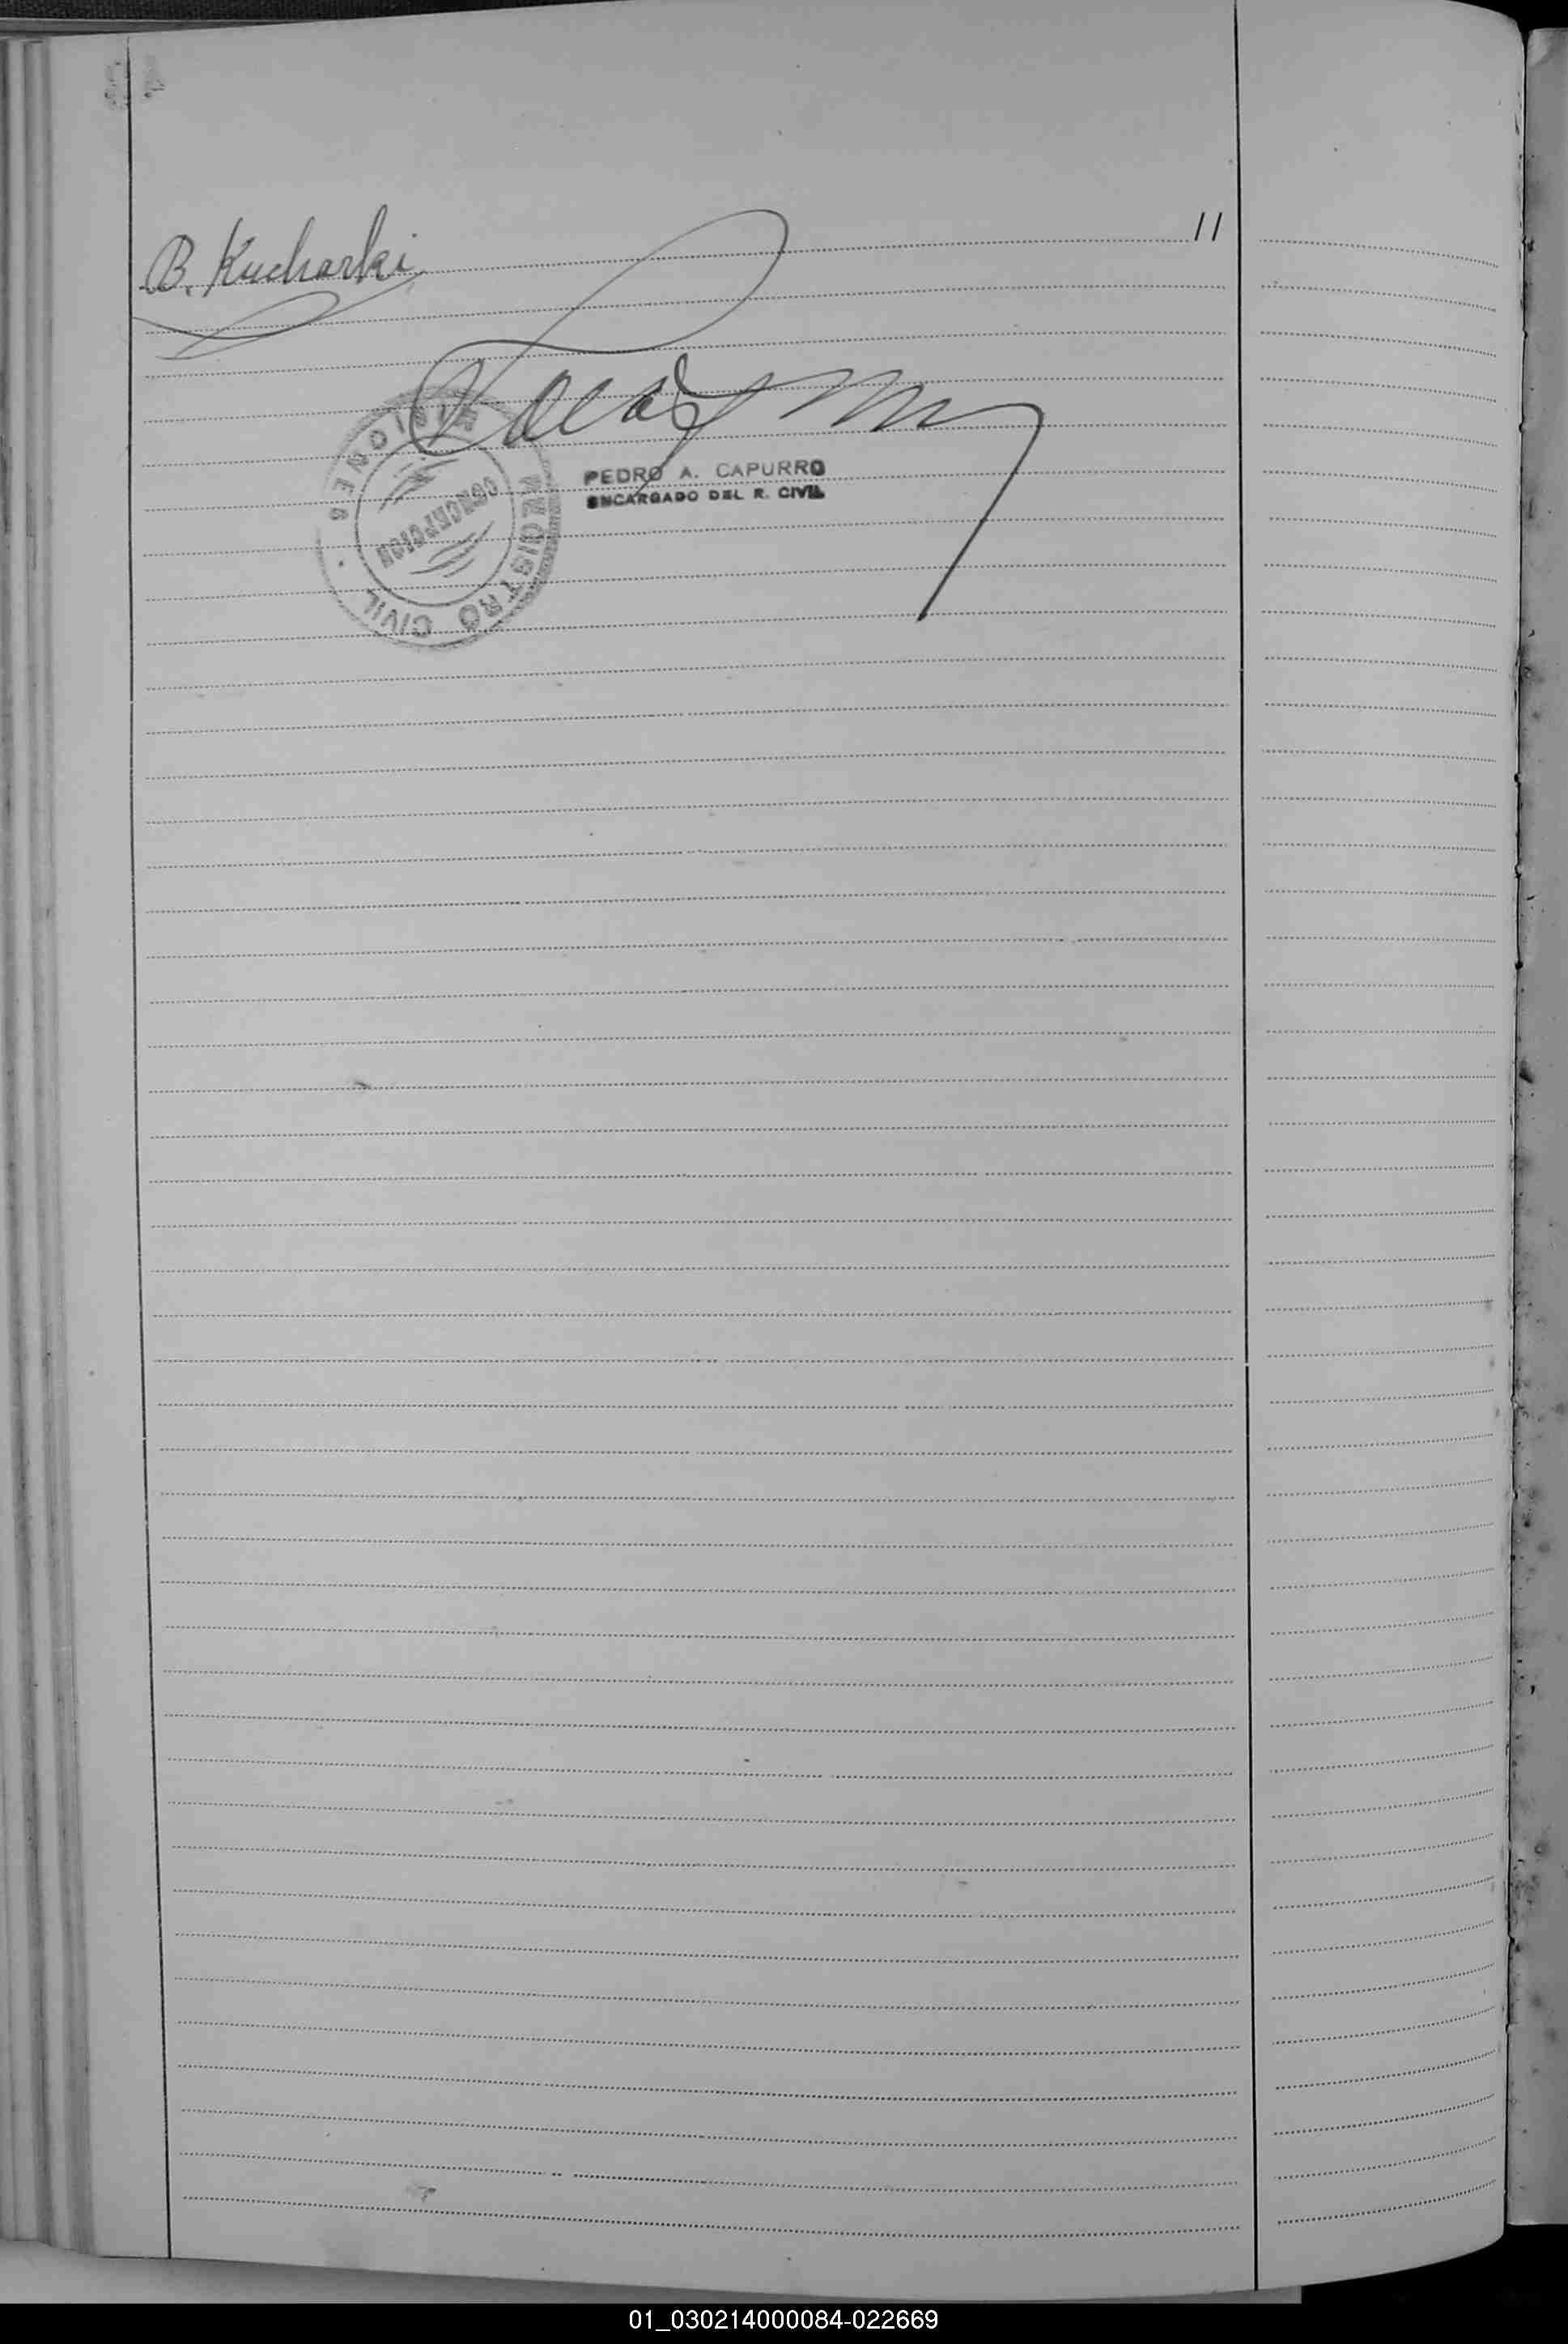 11
B. Kucharki
PEDRO A. CAPURRO
ENCARGADO DEL R. CIVIL
REGISTRO CIVIL
CONCEPCION
MISIONES
01_030214000084-022669